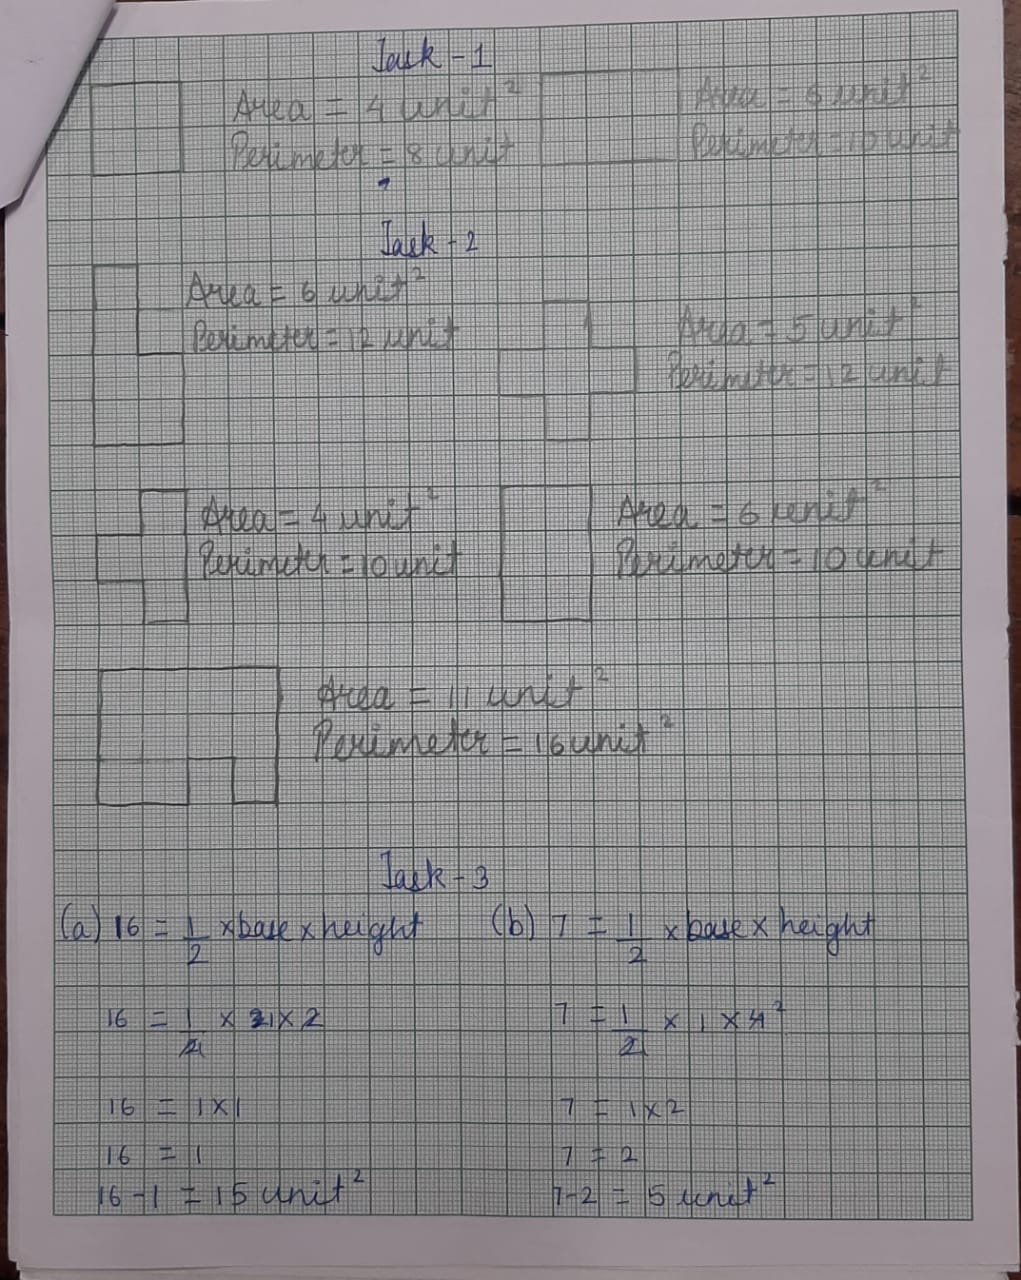 Task - 1
Area = 4 unit²
Perimeter = 8 unit
Area = 6 unit²
Perimeter = 10 unit
Task - 2
Area = 6 unit²
Perimeter = 12 unit
Area = 5 unit²
Perimeter = 12 unit
Area = 4 unit²
Perimeter = 10 unit
Area = 6 unit²
Perimeter = 10 unit
Area = 11 unit²
Perimeter = 16 unit²
Task - 3
(a) 16 = 1/2 × base × height
16 = 1/2 × 1 × 2
16 = 1 × 1
16 = 1
16 - 1 = 15 unit²
(b) 7 = 1/2 × base × height
7 = 1/2 × 1 × 4 ²
7 = 1 × 2
7 = 2
7 - 2 = 5 unit²